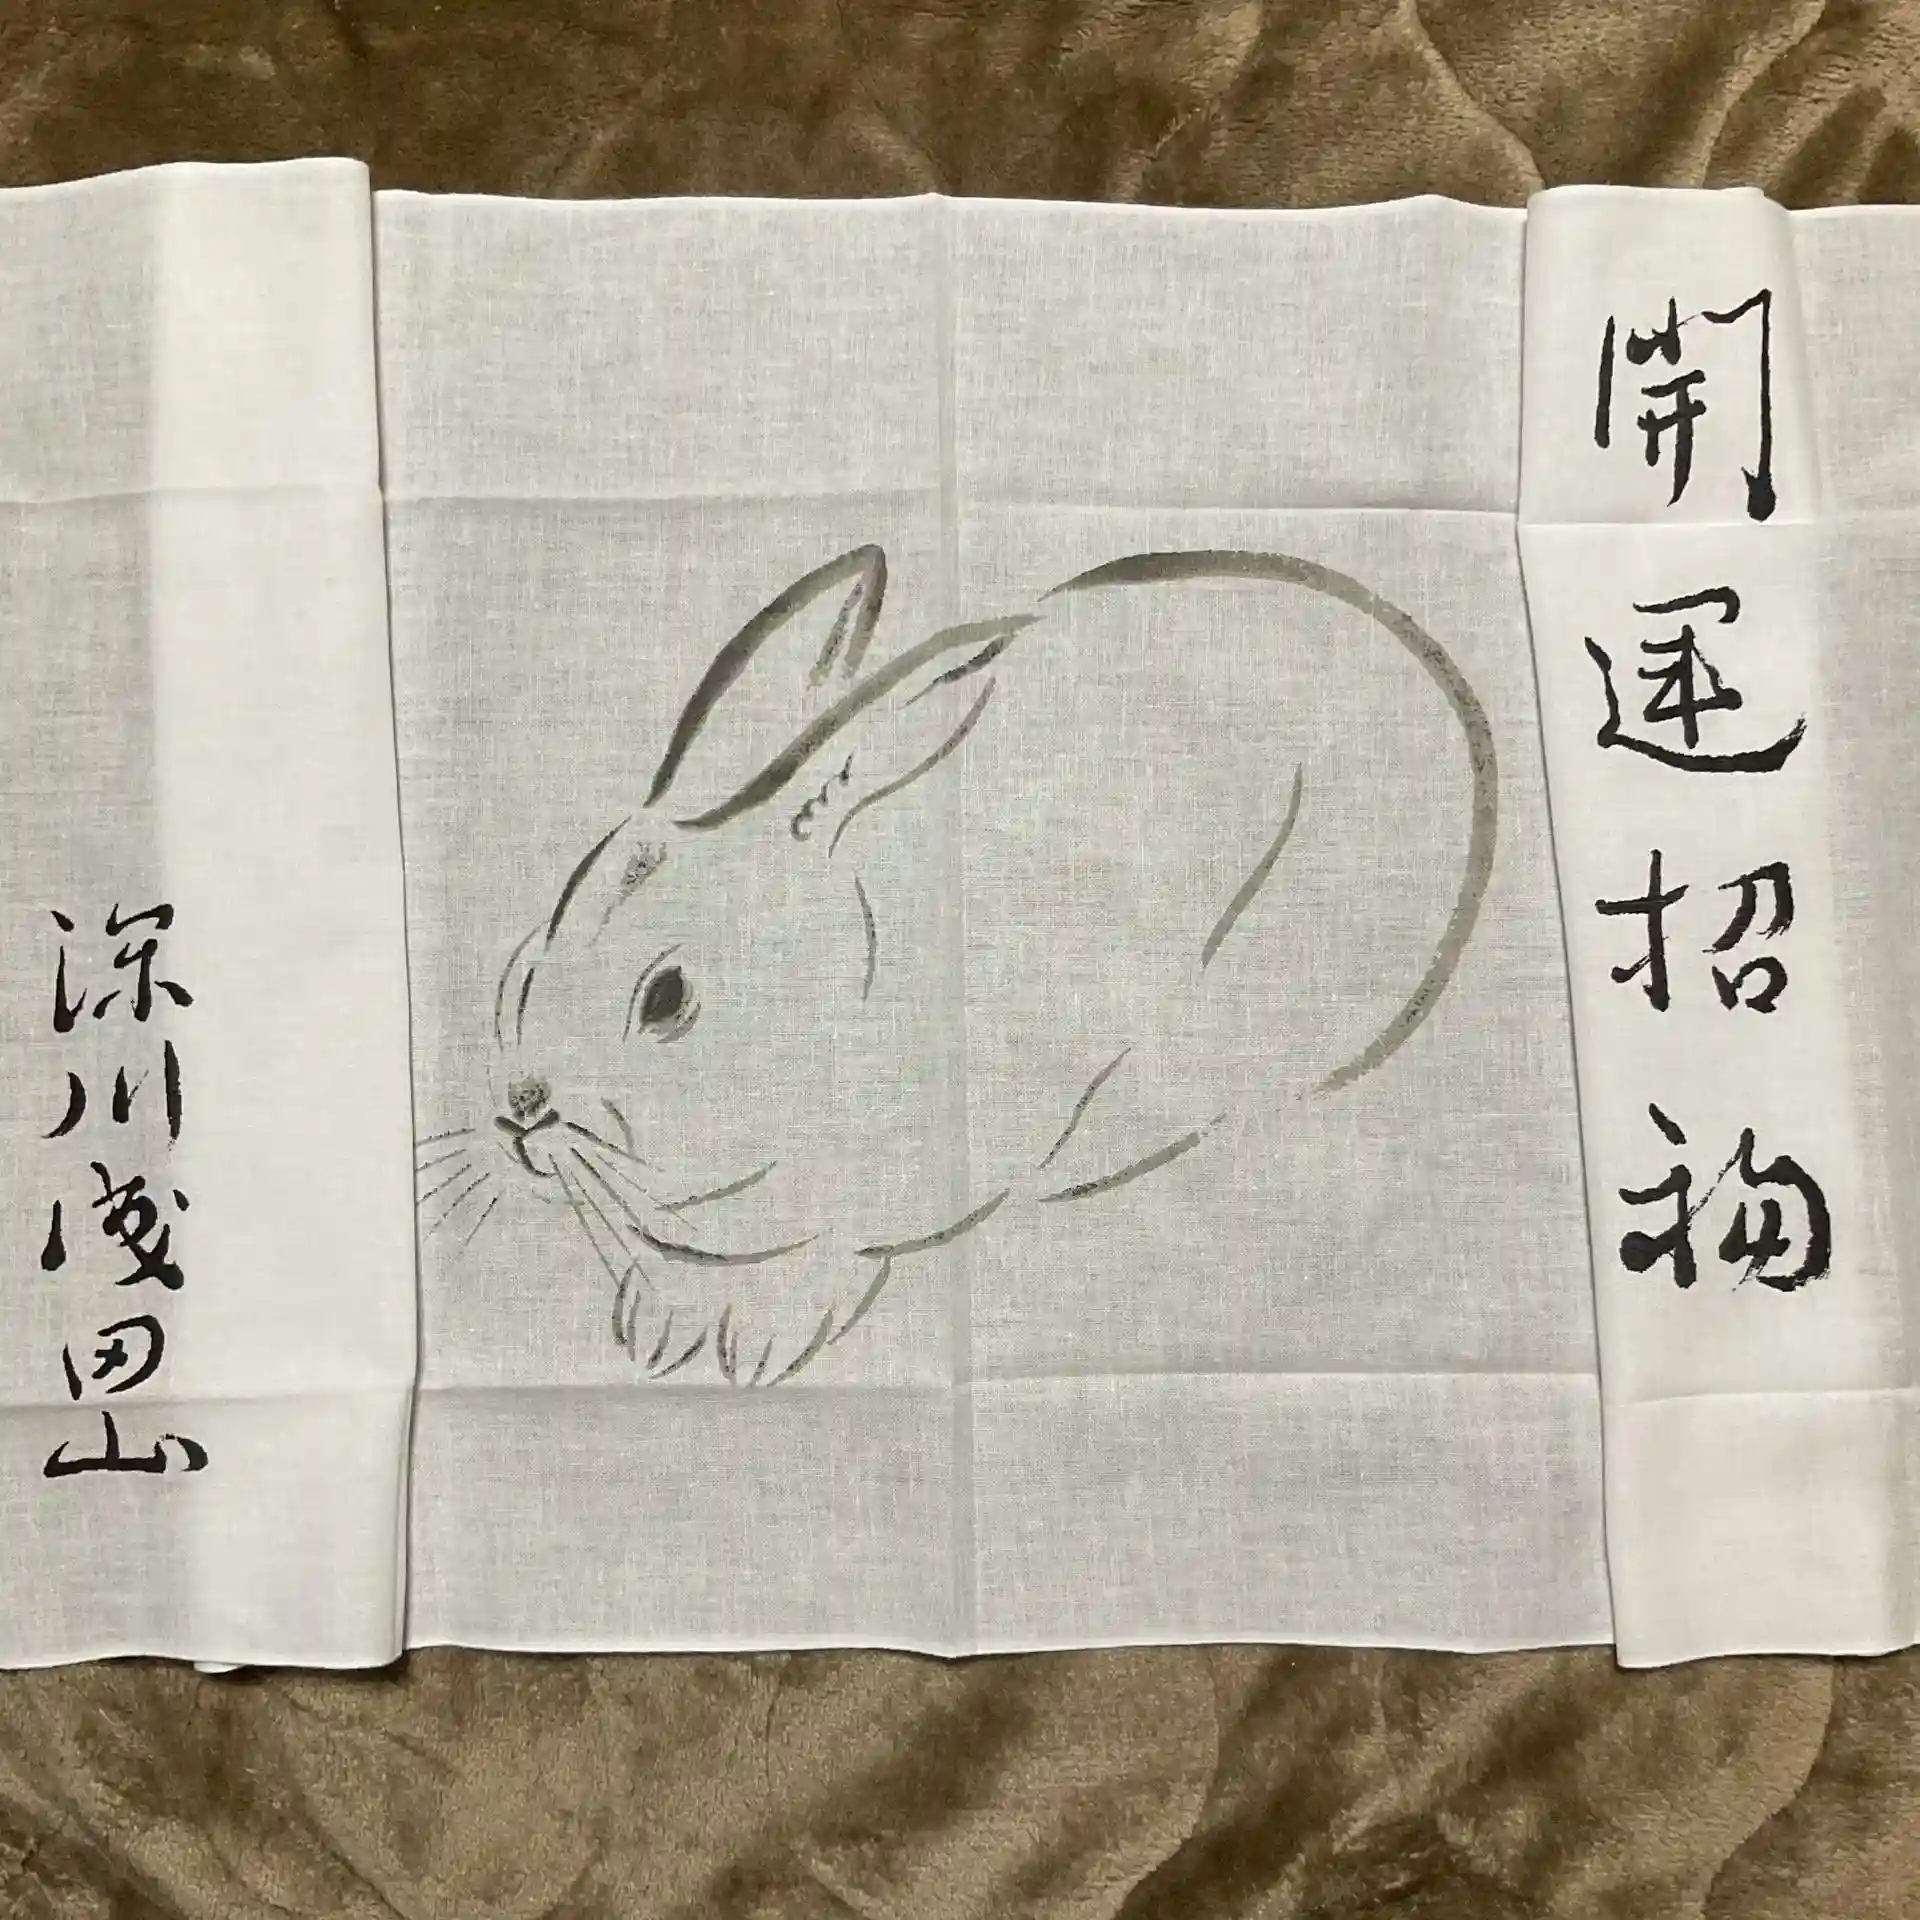 開運招福
深川浅田山